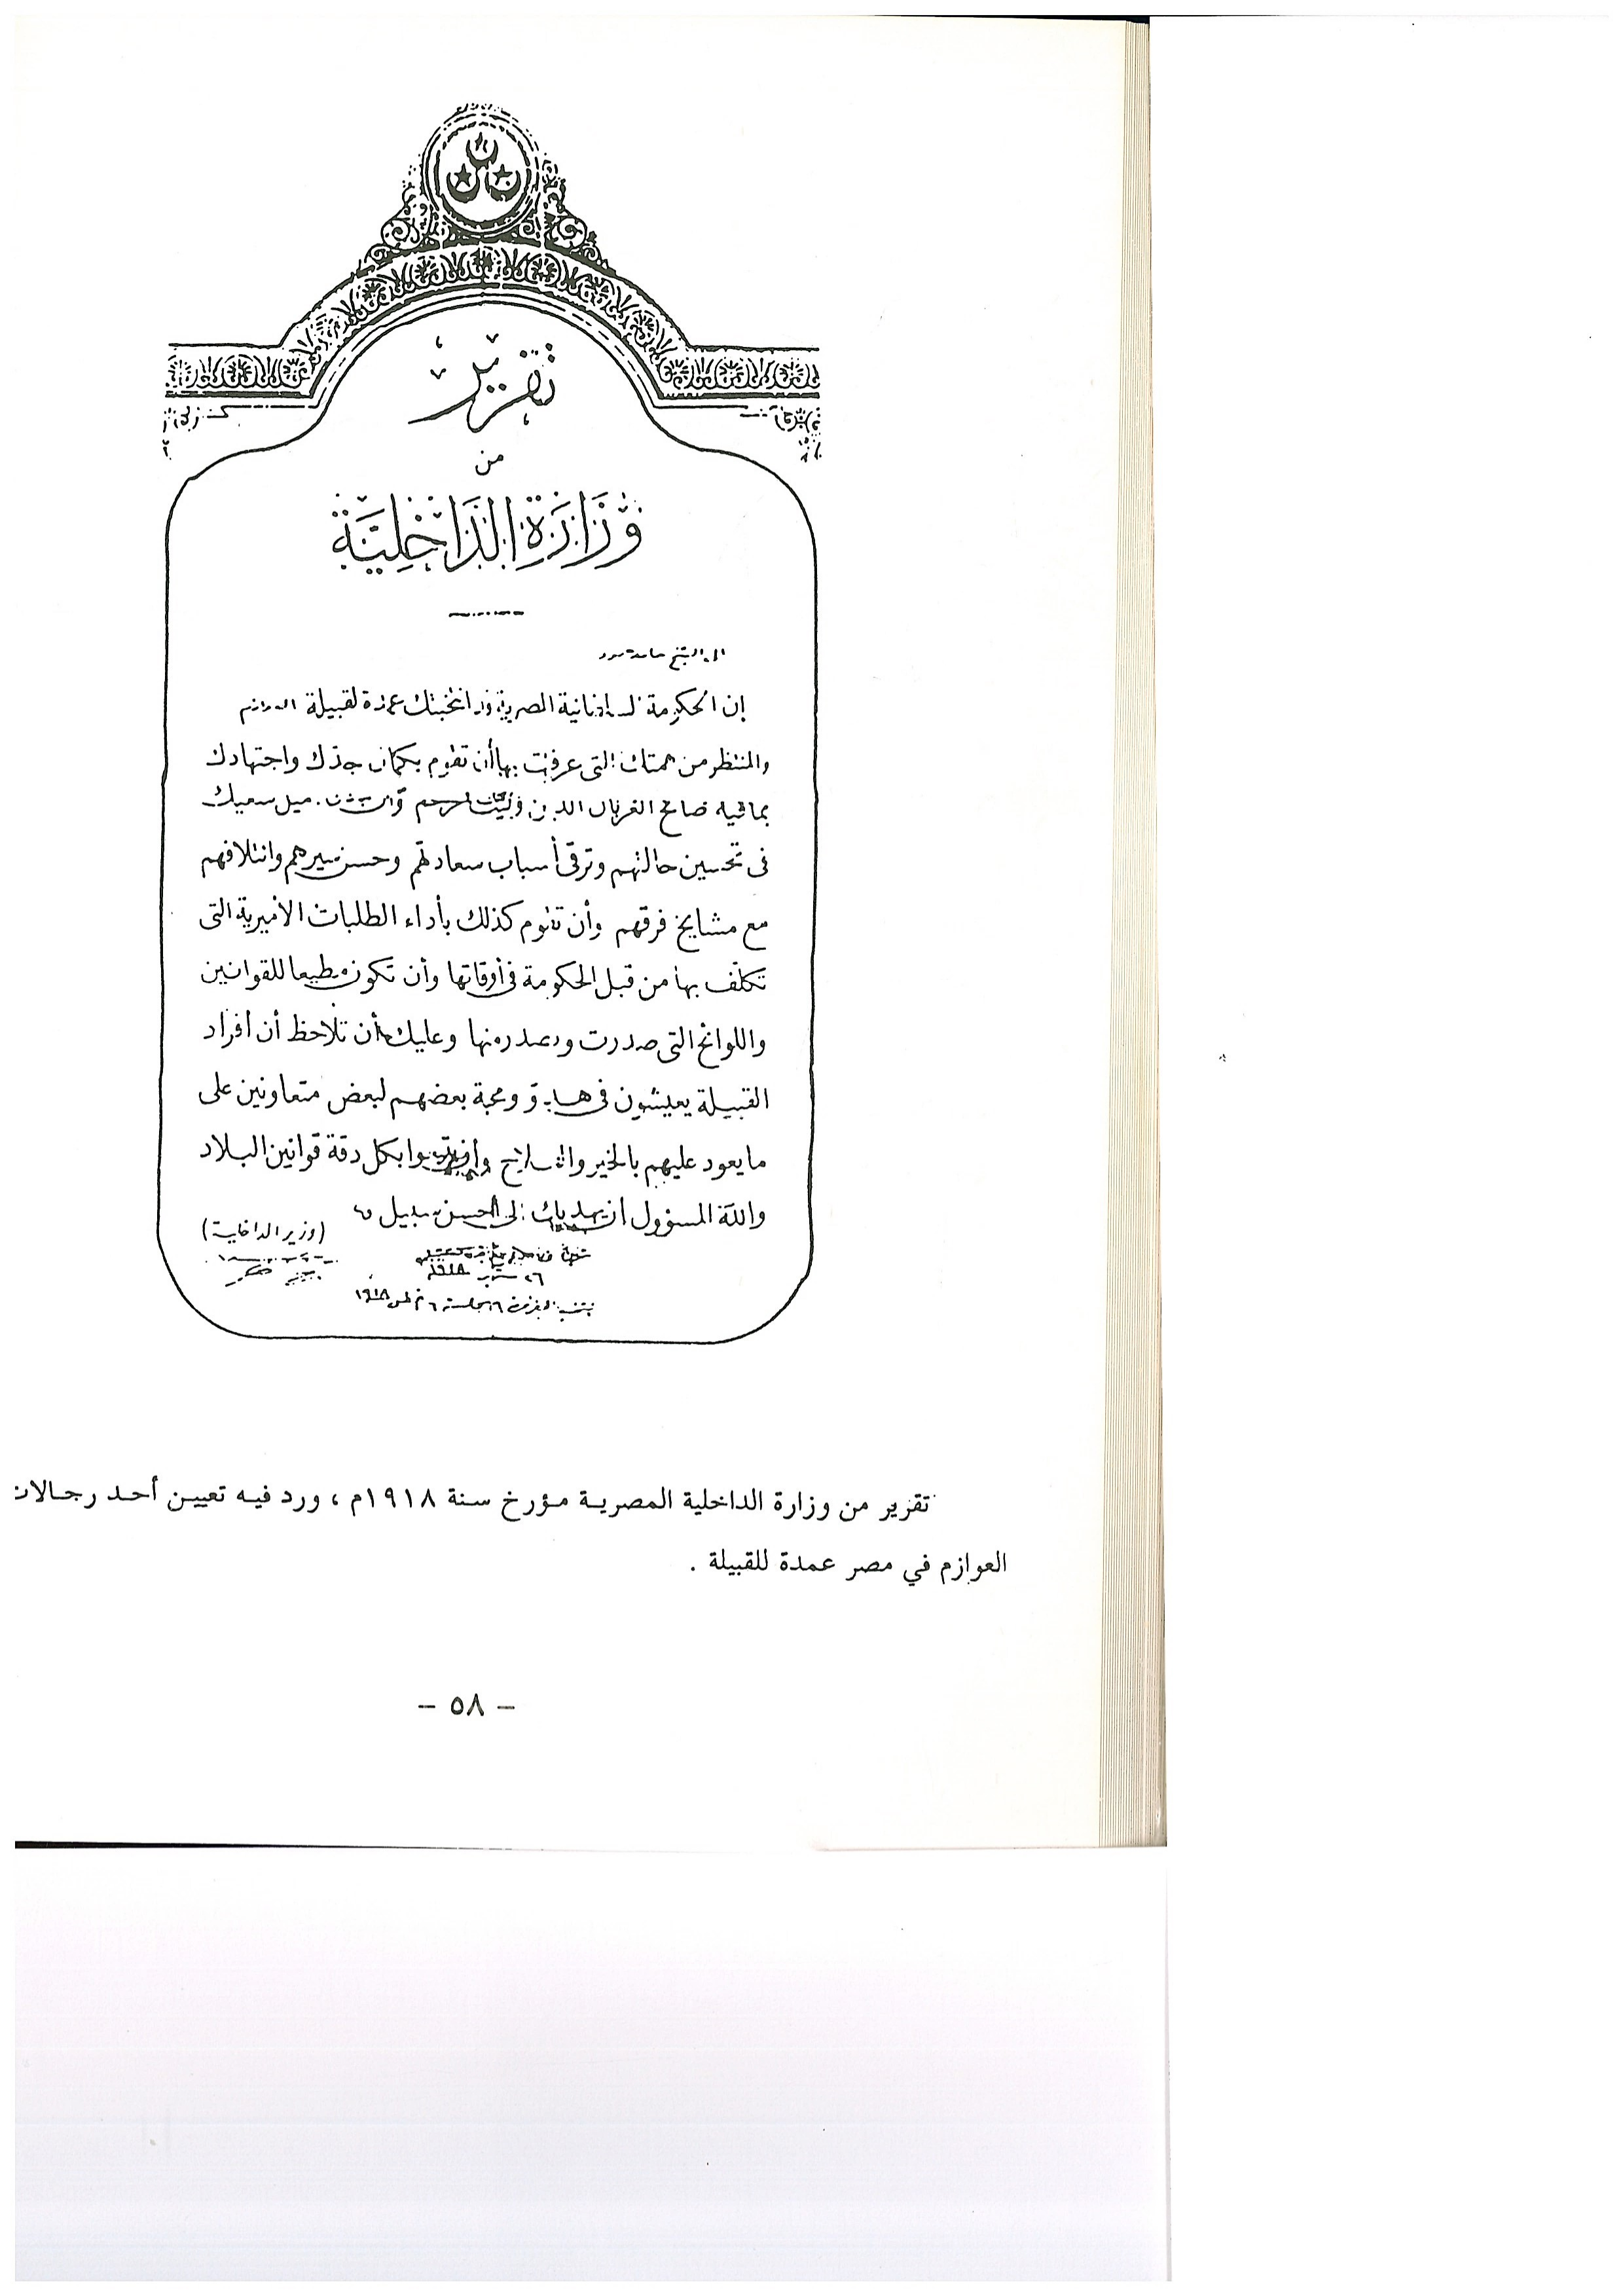 تقرير
من
وزارة الداخلية
الى الشيخ
إن الحكومة السلطانية المصرية قد انتخبتك عمدة لقبيلة العوازم
والمنتظر من همتك التى عرفت بها أن تقوم بكمال جدك واجتهادك
بما فيه صالح العربان الذين
فى تحسين حالتهم وترقى أسباب سعادتهم وحسن سيرهم وائتلافهم
مع مشايخ فرقهم وأن تقوم كذلك بأداء الطلبات الأميرية التى
تكلف بها من قبل الحكومة فى أوقاتها وأن تكون مطيعا للقوانين
واللوائح التى صدرت وعليك أن تلاحظ أن أفراد
القبيلة يعيشون فى ومحبة بعضهم لبعض متعاونين على
ما يعود عليهم بالخير بكل دقة قوانين البلاد
والله المسؤول أن يهديك إلى أحسن سبيل
(وزير الداخلية)
٢٦ ١٩١٨
تقرير من وزارة الداخلية المصرية مؤرخ سنة ١٩١٨م ، ورد فيه تعيين أحد رجالات
العوازم في مصر عمدة للقبيلة .
– ٥٨ –